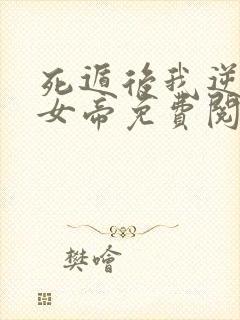 死遁後我逆
女帝免費閱
樊噲